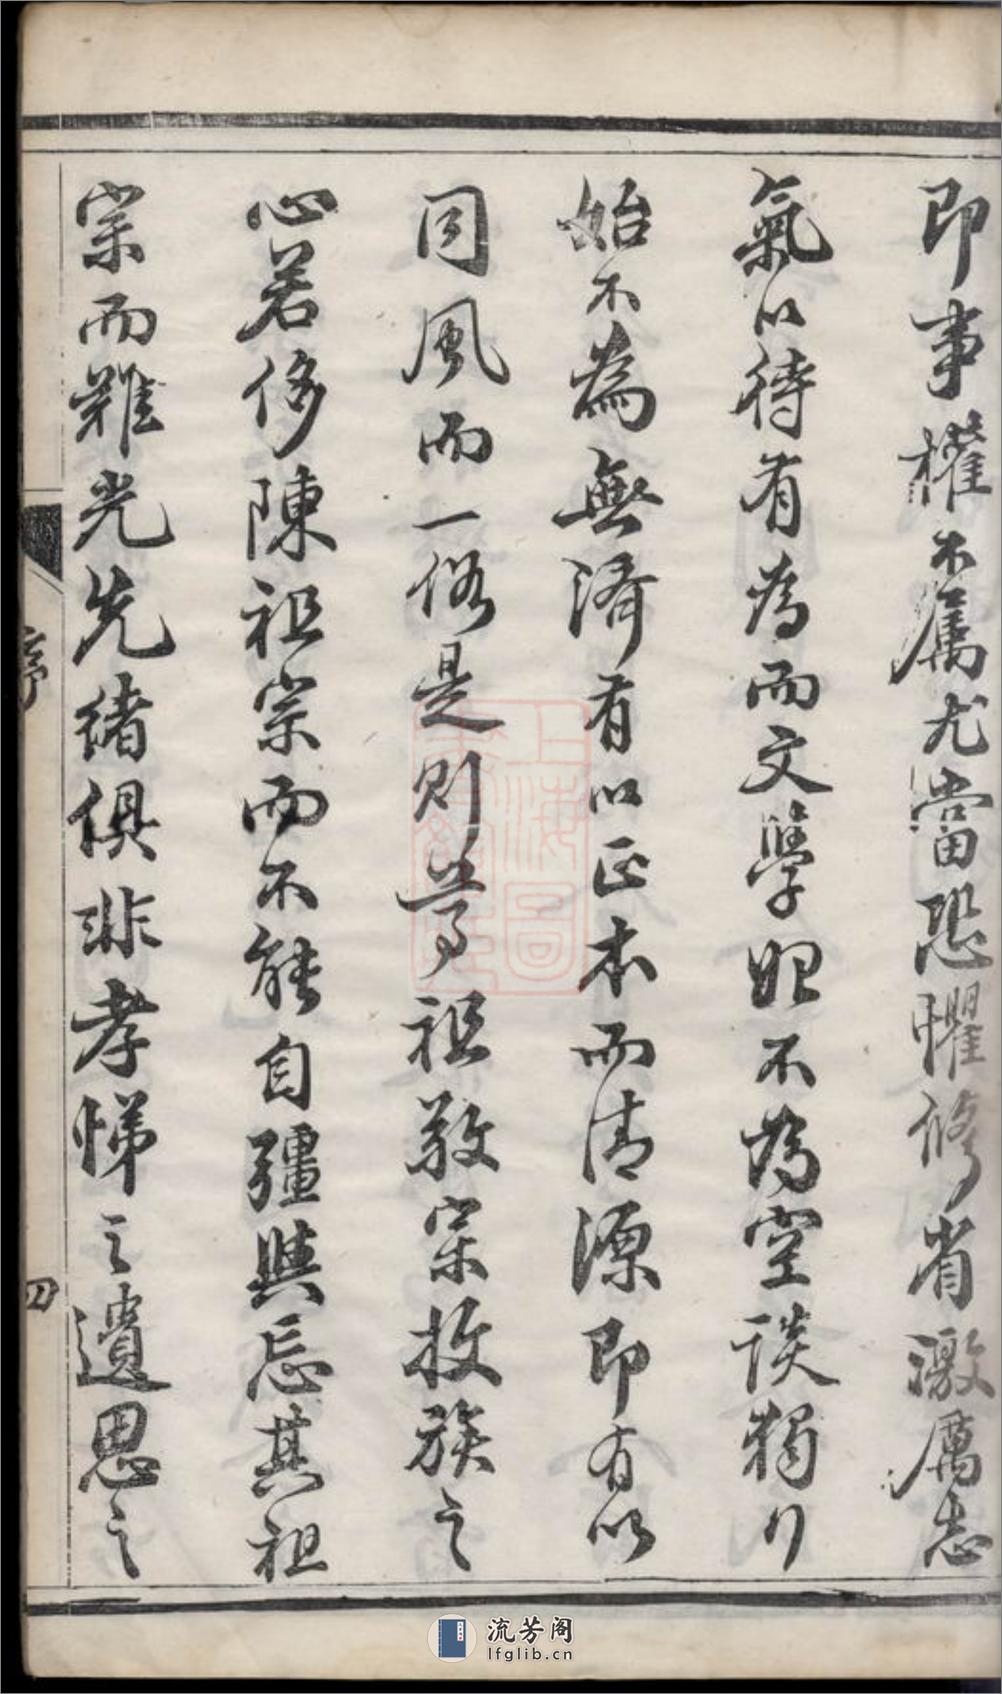 即事權不屬尤當恐懼修省激厲志
氣以待有為而文學始不為空談獨行
始不為無濟有以正本而清源即有以
同風而一俗是則尊祖敬宗收族之
心若侈陳祖宗而不能自彊與忘其祖
宗而難光先緒俱非孝悌之遺思之
序
四
上海圖
流芳阁
lfglib.cn